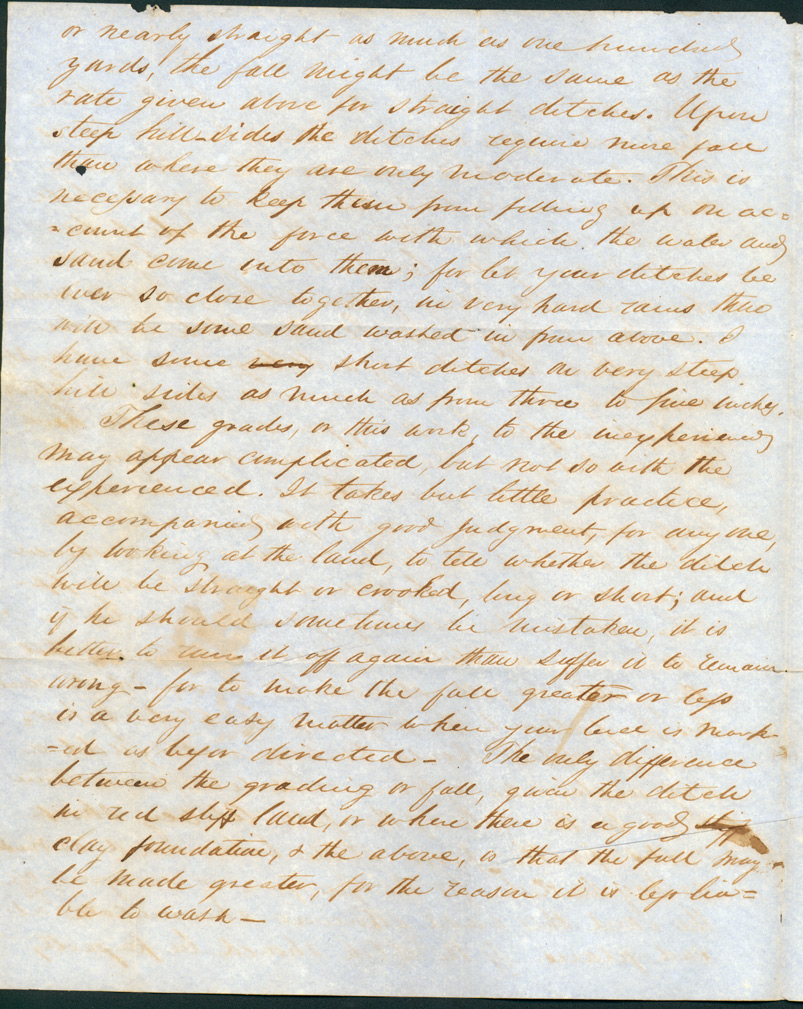 or nearly straight as much as one hundred
yards, the fall might be the same as the
rate given above for straight ditches. Upon
steep hill-sides the ditches require more fall
than where they are only moderate. This is
necessary to keep them from filling up on ac=
=count of the force with which the water and
sand come into them; for let your ditches be
ever so close together, in very hard rains there
will be some sand washed in from above. I
have some very short ditches on very steep
hill sides as much as from three to five inches.
These grades, or this work, to the inexperienced
may appear complicated, but not so with the
experienced. It takes but little practice,
accompanied with good judgment, for any one,
by looking at the land, to tell whether the ditch
will be straight or crooked, long or short; and
if he should sometimes be mistaken, it is
better to run it off again than suffer it to remain
wrong - for to make the fall greater or less
is a very easy matter when your level is mark
=ed as before directed - The only difference
between the grading or fall, given the ditch
in red stiff land, or where there is a good stiff
clay foundation, & the above, is that the fall may
be made greater, for the reason it is less lia=
ble to wash -